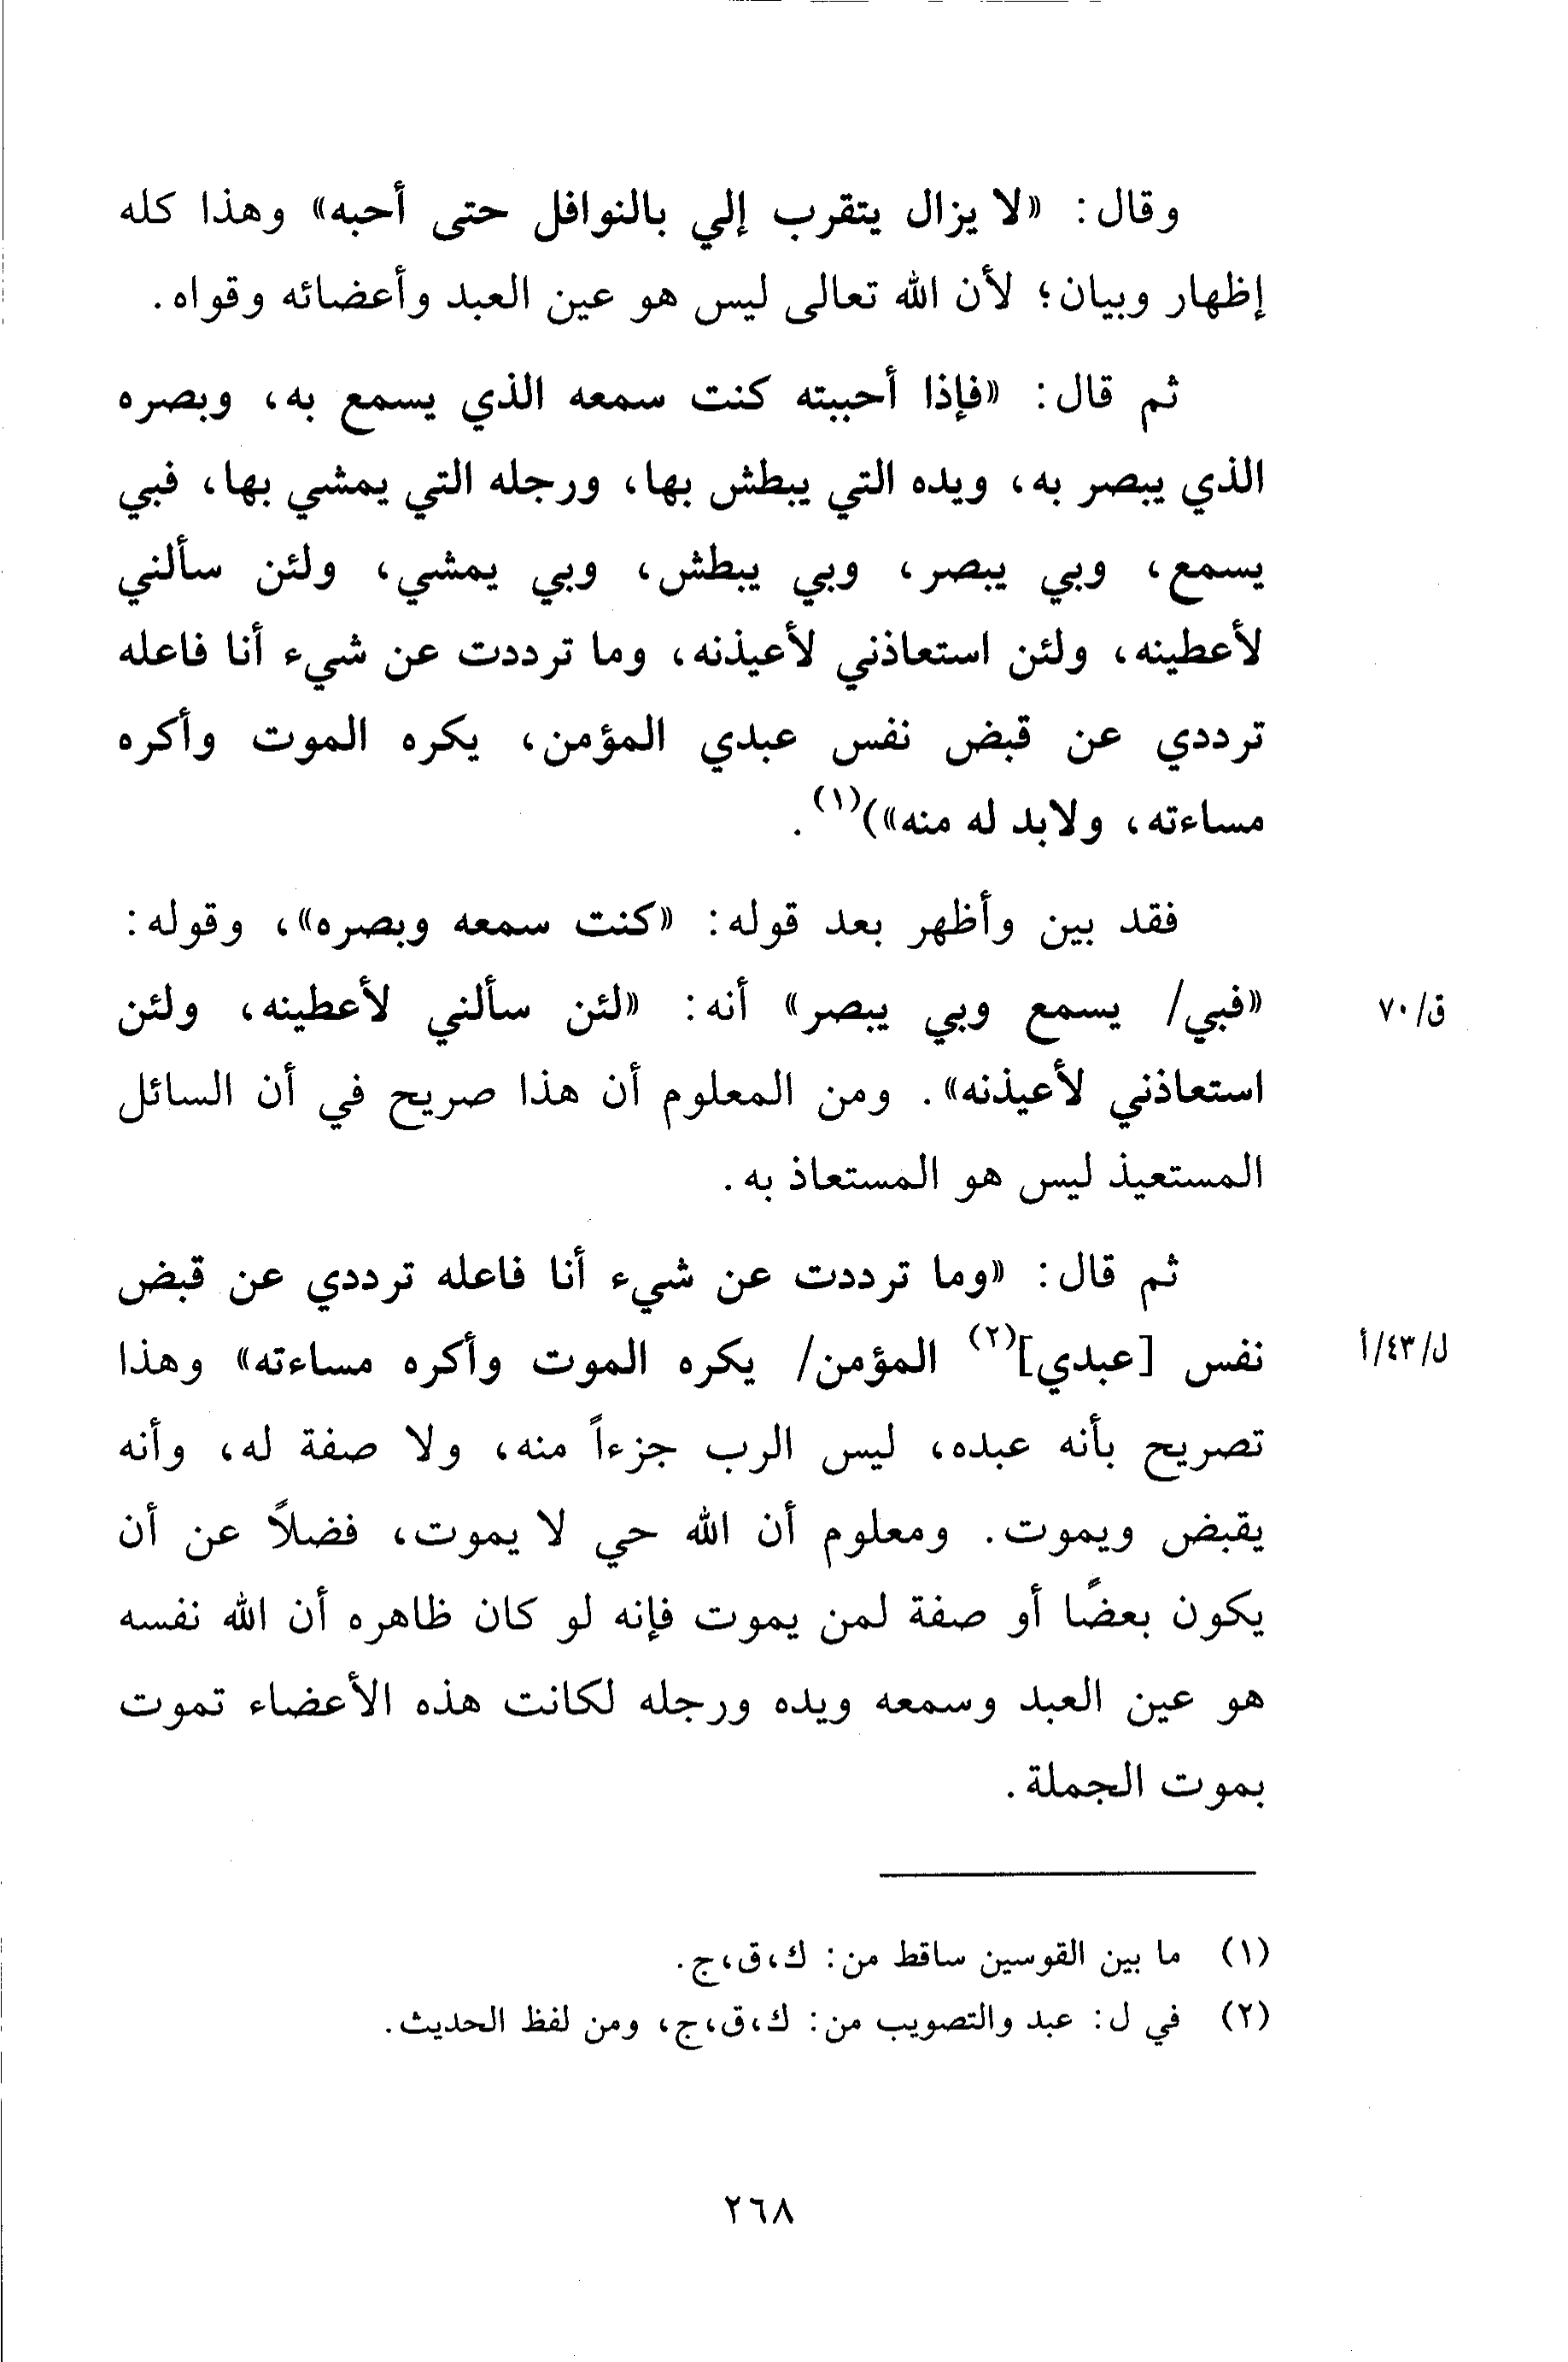 وقال: «لا يزال يتقرب إلي بالنوافل حتى أحبه» وهذا كله
إظهار وبيان؛ لأن الله تعالى ليس هو عين العبد وأعضائه وقواه.
ثم قال: «فإذا أحببته كنت سمعه الذي يسمع به، وبصره
الذي يبصر به، ويده التي يبطش بها، ورجله التي يمشي بها، فبي
يسمع، وبي يبصر، وبي يبطش، وبي يمشي، ولئن سألني
لأعطينه، ولئن استعاذني لأعيذنه، وما ترددت عن شيء أنا فاعله
ترددي عن قبض نفس عبدي المؤمن، يكره الموت وأكره
مساءته، ولابد له منه»)(١).
فقد بين وأظهر بعد قوله: «كنت سمعه وبصره»، وقوله:
«فبي/ يسمع وبي يبصر» أنه: «لئن سألني لأعطينه، ولئن
ق/٧٠
استعاذني لأعيذنه». ومن المعلوم أن هذا صريح في أن السائل
المستعيذ ليس هو المستعاذ به.
ثم قال: «وما ترددت عن شيء أنا فاعله ترددي عن قبض
نفس [عبدي](٢) المؤمن/ يكره الموت وأكره مساءته» وهذا
ل/٤٣/أ
تصريح بأنه عبده، ليس الرب جزءاً منه، ولا صفة له، وأنه
يقبض ويموت. ومعلوم أن الله حي لا يموت، فضلاً عن أن
يكون بعضًا أو صفة لمن يموت فإنه لو كان ظاهره أن الله نفسه
هو عين العبد وسمعه ويده ورجله لكانت هذه الأعضاء تموت
بموت الجملة.
(١) ما بين القوسين ساقط من: ك،ق،ج.
(٢) في ل: عبد والتصويب من: ك،ق،ج، ومن لفظ الحديث.
٢٦٨